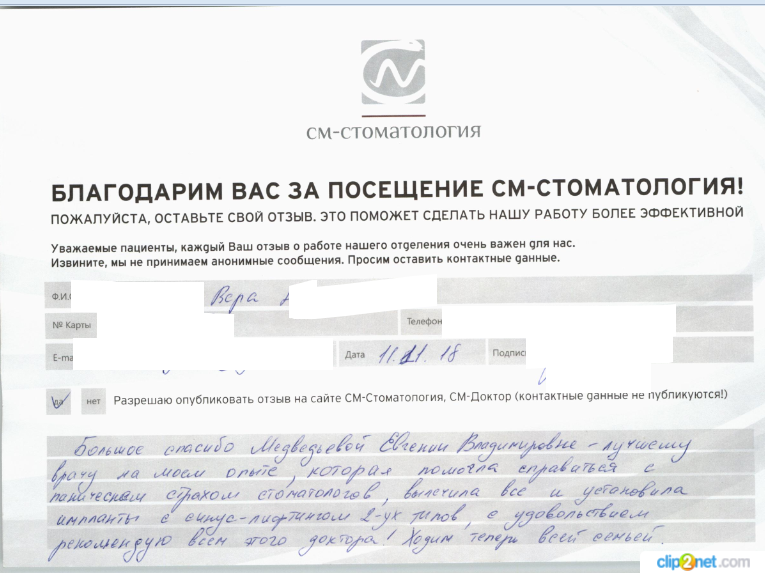 СМ-СТОМАТОЛОГИЯ
БЛАГОДАРИМ ВАС ЗА ПОСЕЩЕНИЕ СМ-СТОМАТОЛОГИЯ!
ПОЖАЛУЙСТА, ОСТАВЬТЕ СВОЙ ОТЗЫВ. ЭТО ПОМОЖЕТ СДЕЛАТЬ НАШУ РАБОТУ БОЛЕЕ ЭФФЕКТИВНОЙ
Уважаемые пациенты, каждый Ваш отзыв о работе нашего отделения очень важен для нас.
Извините, мы не принимаем анонимные сообщения. Просим оставить контактные данные.
Ф.И.О Вера
№ Карты Телефон
E-ma Дата 11.11.18 Подпись
да нет Разрешаю опубликовать отзыв на сайте СМ-Стоматология, СМ-Доктор (контактные данные не публикуются!)
Большое спасибо Медведьевой Евгении Владимировне - лучшему
врачу на моем опыте, которая помогла справиться с
паническим страхом стоматологов, вылечила все и установила
импланты с синус-лифтингом 2-ух типов, с удовольствием
рекомендую всем этого доктора! Ходим теперь всей семьей.
clip2net.com